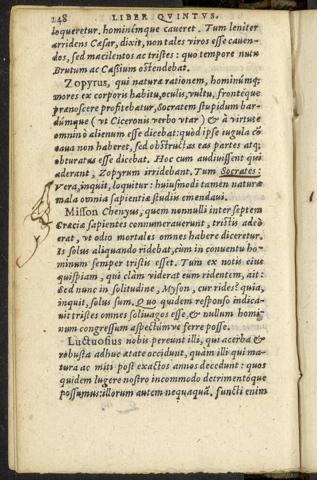 248 LIBER QVINTVS.
loqueretur. hominémque caueret. Tum leniter
arridens Cæsar, dixit, non tales viros esse cauen-
dos, sed macilentos ac tristes: quo tempore nutu
Brutum ac Cassium ostendebat.
Zopyrus, qui naturæ rationem, hominúmq;
mores ex corporis habitu, oculis, vultu, frontéque
prænoscere profitebatur, Socratem stupidum bar-
dumque (vt Ciceronis verbo vtar) & à virtute
omnino alienum esse dicebat: quòd ipse iugula cō
caua non haberet, sed obstructas eas partes atq;
obturatas esse dicebat. Hoc cum audiuissent qui
aderant, Zopyrum irridebant. Tum Socrates:
vera, inquit, loquitur: huiusmodi tamen naturæ
mala omnia sapientiæ studiis emendaui.
Misson Chenyus, quem nonnulli inter septem
Græcia sapientes connumerauerunt, tristis adeò
erat, vt odio mortales omnes habere diceretur.
Is solus aliquando ridebat, cùm in conuentu ho-
minum semper tristis esset. Tum ex notis eius
quispiam, qui clàm viderat eum ridentem, ait:
Sed nunc in solitudine, Myson, cur rides? quia,
inquit, solus sum. Quo quidem responso indica-
uit tristes omnes soliuagos esse, & nullum homi-
num congressum aspectúmve ferre posse.
Luctuosius nobis pereunt illi, qui acerba &
robusta adhuc ætate occidunt, quàm illi qui ma-
tura ac miti post exactos annos decedunt: quos
quidem lugere nostro incommodo detrimentóque
possumus: illorum autem nequaquā. functi enim